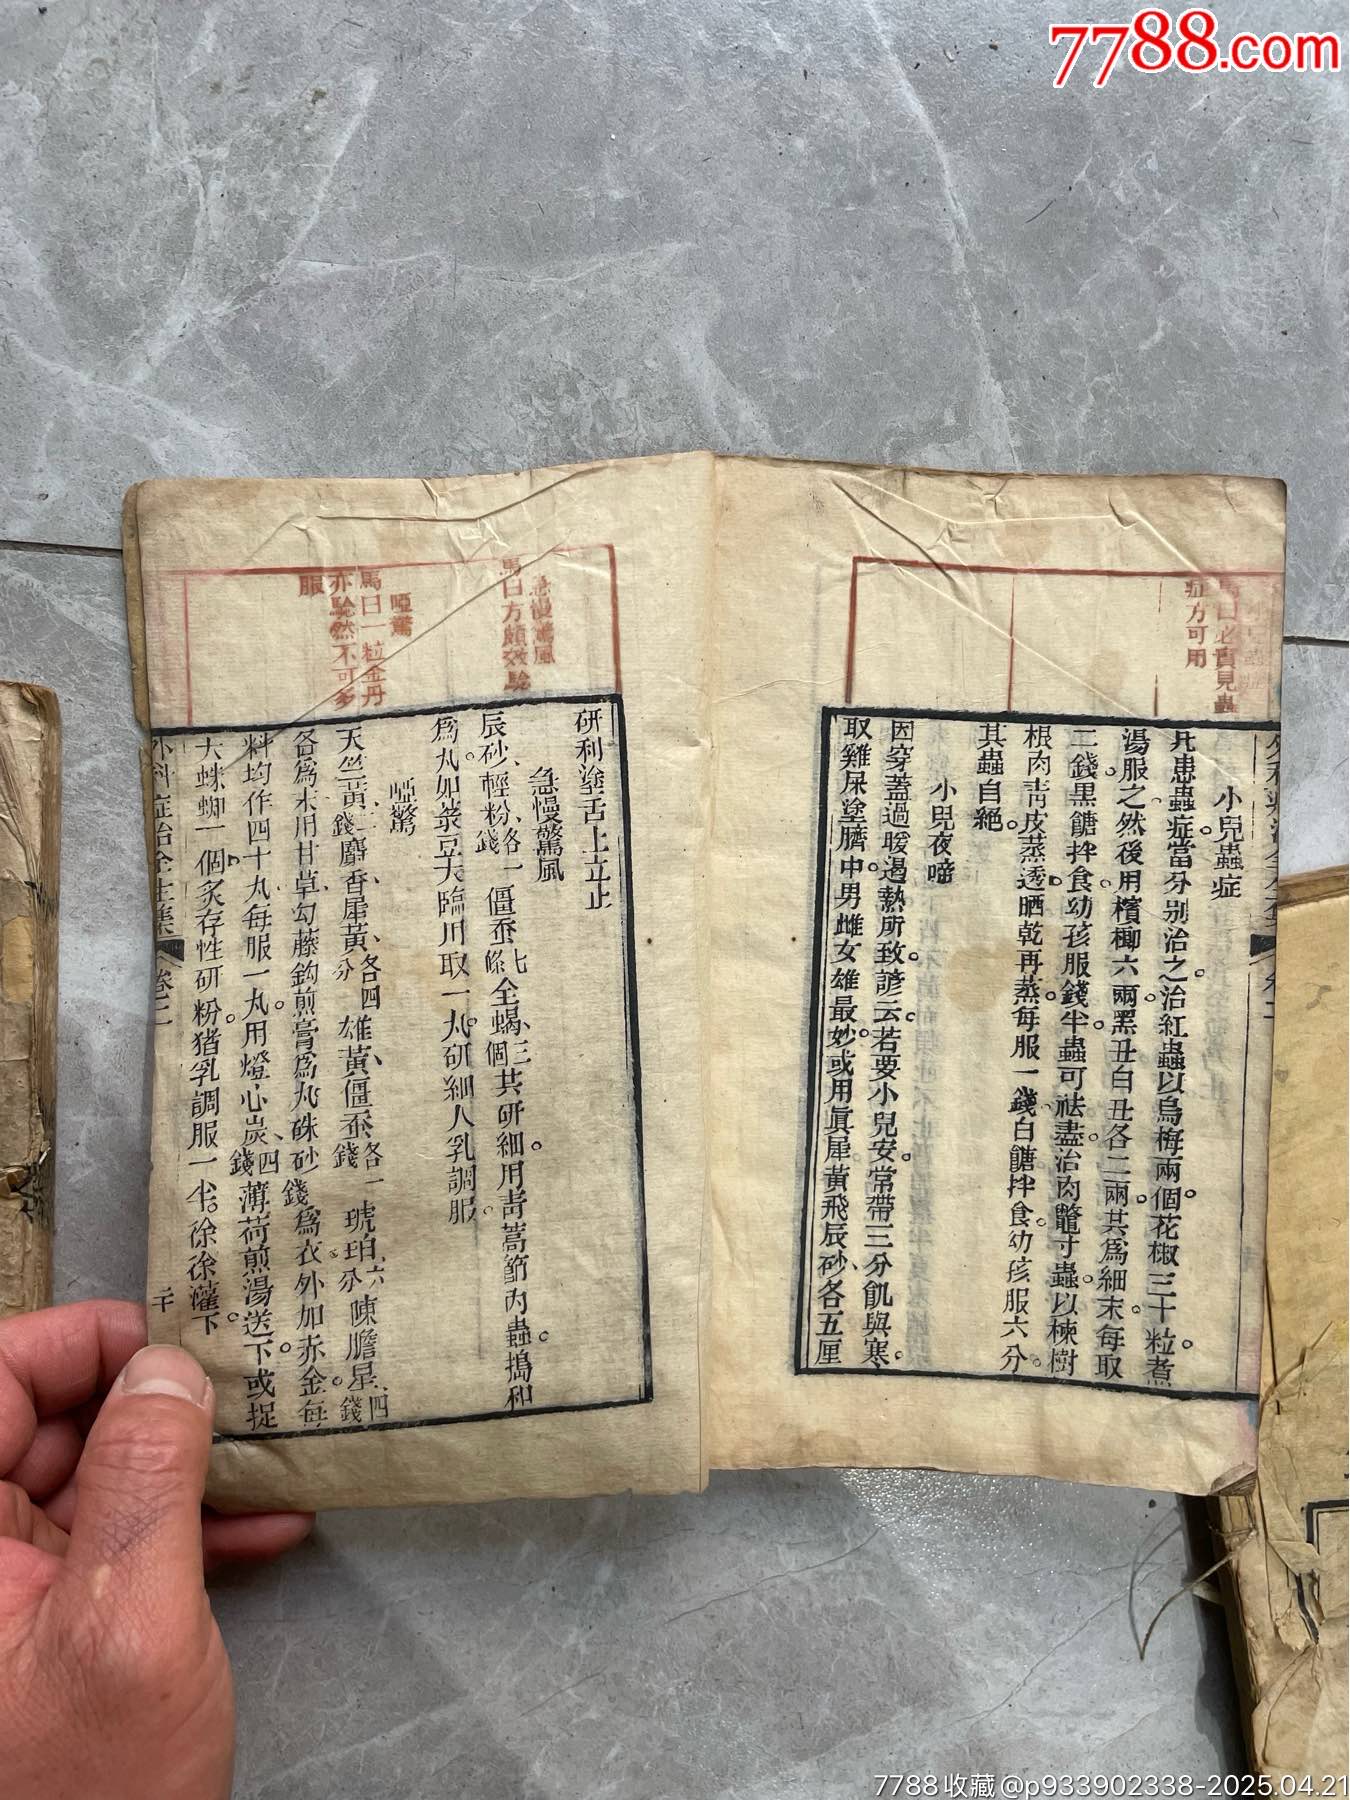 7788.com
馬曰必實見蟲
症方可用
小兒蟲症
凡患蟲症當分别治之治紅蟲以烏梅兩個花椒三十粒煮
湯服之然後用檳榔六兩黑丑白丑各二兩其為細末每取
二錢黑餹拌食幼孩服錢半蟲可祛盡治肉鼈寸蟲以楝樹
根肉青皮蒸透晒乾再蒸每服一錢白餹拌食幼孩服六分
其蟲自絕
小兒夜啼
因穿蓋過暖遏熱所致諺云若要小兒安常帶三分飢與寒
取雞屎塗臍中男雌女雄最妙或用眞犀黃飛辰砂各五厘
急慢驚風
馬曰方頗效驗
啞驚
馬曰一粒金丹
亦驗然不可多
服
研利塗舌上立止
急慢驚風
辰砂輕粉各一錢僵蚕七條全蝎三個共研細用靑蒿節內蟲搗和
為丸如菉豆大臨用取一丸研細人乳調服
啞驚
天竺黃二錢麝香犀黃各四分雄黃僵蚕各一錢琥珀六分陳膽星四錢
各為末用甘草勾藤鈎煎膏為丸硃砂錢為衣外加赤金每
料均作四十丸每服一丸用燈心炭四錢薄荷煎湯送下或捉
大蛛蜘一個炙存性研粉猪乳調服一半徐徐灌下
外科症治全生集 卷二 二十
7788收藏@p933902338-2025.04.21